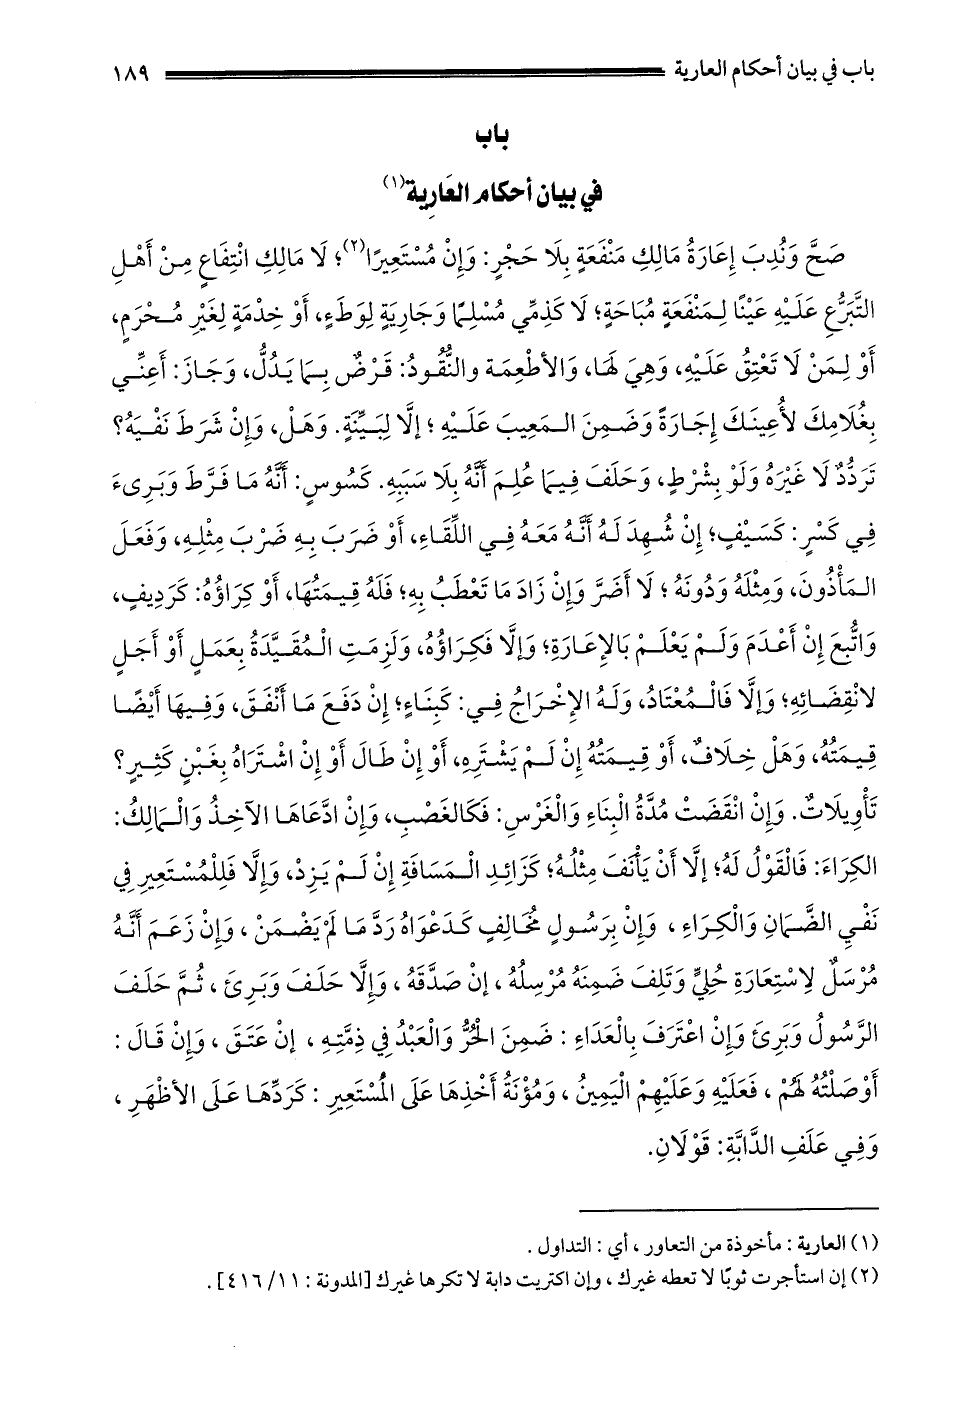 باب في بيان أحكام العارية ١٨٩
باب
في بيان أحكام العَارِية(١)
صَحَّ وَنُدِبَ إِعَارَةُ مَالِكِ مَنْفَعَةٍ بِلَا حَجْرٍ: وَإِنْ مُسْتَعِيرًا(٢)؛ لَا مَالِكِ انْتِفَاعٍ مِنْ أَهْلِ
التَّبَرُّعِ عَلَيْهِ عَيْنًا لِمَنْفَعَةٍ مُبَاحَةٍ؛ لَا كَذِمِّيٍ مُسْلِمًا وَجَارِيَةٍ لِوَطَءٍ، أَوْ خِدْمَةٍ لِغَيْرِ مُحْرَمٍ،
أَوْ لِمَنْ لَا تَعْتِقُ عَلَيْهِ، وَهِيَ لَهَا، وَالأطْعِمَة والنُّقُودُ: قَرْضٌ بِمَا يَدُلُّ، وَجَازَ: أَعِنِّي
بِغُلَامِكَ لأُعِينَكَ إِجَارَةً وَضَمِنَ المَعِيبَ عَلَيْهِ؛ إِلَّا لِبَيِّنَةٍ. وَهَلْ، وَإِنْ شَرَطَ نَفْيَهُ؟
تَرَدُّدٌ لَا غَيْرَهُ وَلَوْ بِشْرْطٍ، وَحَلَفَ فِيمَا عُلِمَ أَنَّهُ بِلَا سَبَبِهِ. كَسُوسٍ: أَنَّهُ مَا فَرَّطَ وَبَرِىءَ
فِي كَسْرٍ: كَسَيْفٍ؛ إِنْ شُهِدَ لَهُ أَنَّهُ مَعَهُ فِي اللِّقَاءِ، أَوْ ضَرَبَ بِهِ ضَرْبَ مِثْلِهِ، وَفَعَلَ
المَأْذُونَ، وَمِثْلَهُ وَدُونَهُ؛ لَا أَضَرَّ وَإِنْ زَادَ مَا تَعْطَبُ بِهِ؛ فَلَهُ قِيمَتُهَا، أَو كِرَاؤُهُ: كَرَدِيفٍ،
وَاتُّبِعَ إِنْ أَعْدَمَ وَلَمْ يَعْلَمْ بَالإِعَارَةِ؛ وَإلَّا فَكِرَاؤُهُ، وَلَزِمَتِ الْمُقَيَّدَةُ بِعَمَلٍ أَوْ أَجَلٍ
لانْقِضَائِهِ؛ وَإِلَّا فَالْمُعْتَادُ، وَلَهُ الإِخْرَاجُ فِي: كَبِنَاءٍ؛ إِنْ دَفَعَ مَا أَنْفَقَ، وَفِيهَا أَيْضًا
قِيمَتُهُ، وَهَلْ خِلَافٌ، أَوْ قِيمَتُهُ إِنْ لَمْ يَشْتَرِهِ، أَوْ إِنْ طَالَ أَوْ إِنْ اشْتَرَاهُ بِغَبْنٍ كَثِيرٍ؟
تَأْوِيلَاتٌ. وَإِنْ انْقَضَتْ مُدَّةُ الْبِنَاءِ وَالْغَرْسِ: فَكَالغَصْبِ، وَإِنْ ادَّعَاهَا الآخِذُ وَالْمَالِكُ:
الكِرَاءَ: فَالْقَوْلُ لَهُ؛ إِلَّا أَنْ يَأْنَفَ مِثْلُهُ؛ كَزَائِدِ الْمَسَافَةِ إِنْ لَمْ يَزِدْ، وَإِلَّا فَلِلْمُسْتَعِيرِ فِي
نَفْيِ الضَّمَانِ وَالْكِرَاءِ، وَإِنْ بِرَسُولٍ مُخَالِفٍ كَدَعْوَاهُ رَدَّ مَا لَمْ يَضْمَنْ، وَإِنْ زَعَمَ أَنَّهُ
مُرْسَلٌ لِاسْتِعَارَةِ حُلِيٍّ وَتَلِفَ ضَمِنَهُ مُرْسِلُهُ، إِنْ صَدَّقَهُ، وَإِلَّا حَلَفَ وَبَرِئَ، ثُمَّ حَلَفَ
الرَّسُولُ وَبَرِئَ وَإِنْ اعْتَرَفَ بِالْعَدَاءِ: ضَمِنَ الْحُرُّ وَالْعَبْدُ فِي ذِمَّتِهِ، إِنْ عَتَقَ، وَإِنْ قَالَ:
أَوْصَلْتُهُ لَهُمْ، فَعَلَيْهِ وَعَلَيْهِمْ الْيَمِينُ، وَمُؤْنَةُ أَخْذِهَا عَلَى الْمُسْتَعِيرِ: كَرَدِّهَا عَلَى الأظْهَرِ،
وَفِي عَلَفِ الدَّابَّةِ: قَوْلَانِ.
(١) العارية: مأخوذة من التعاور، أي: التداول.
(٢) إن استأجرت ثوبًا لا تعطه غيرك، وإن اكتريت دابة لا تكرها غيرك [المدونة: ١١/ ٤١٦].